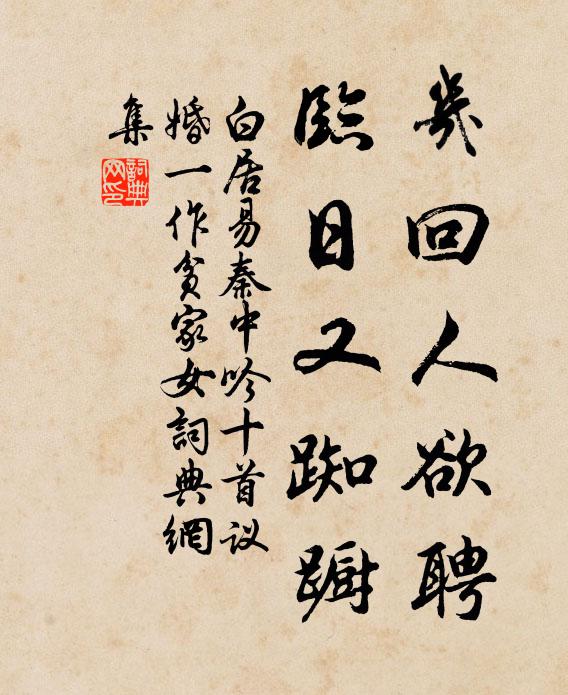 幾回人欲聘
臨日又踟躕
白居易秦中吟十首议
婚一作貧家女詞典網
集
詞典
网印